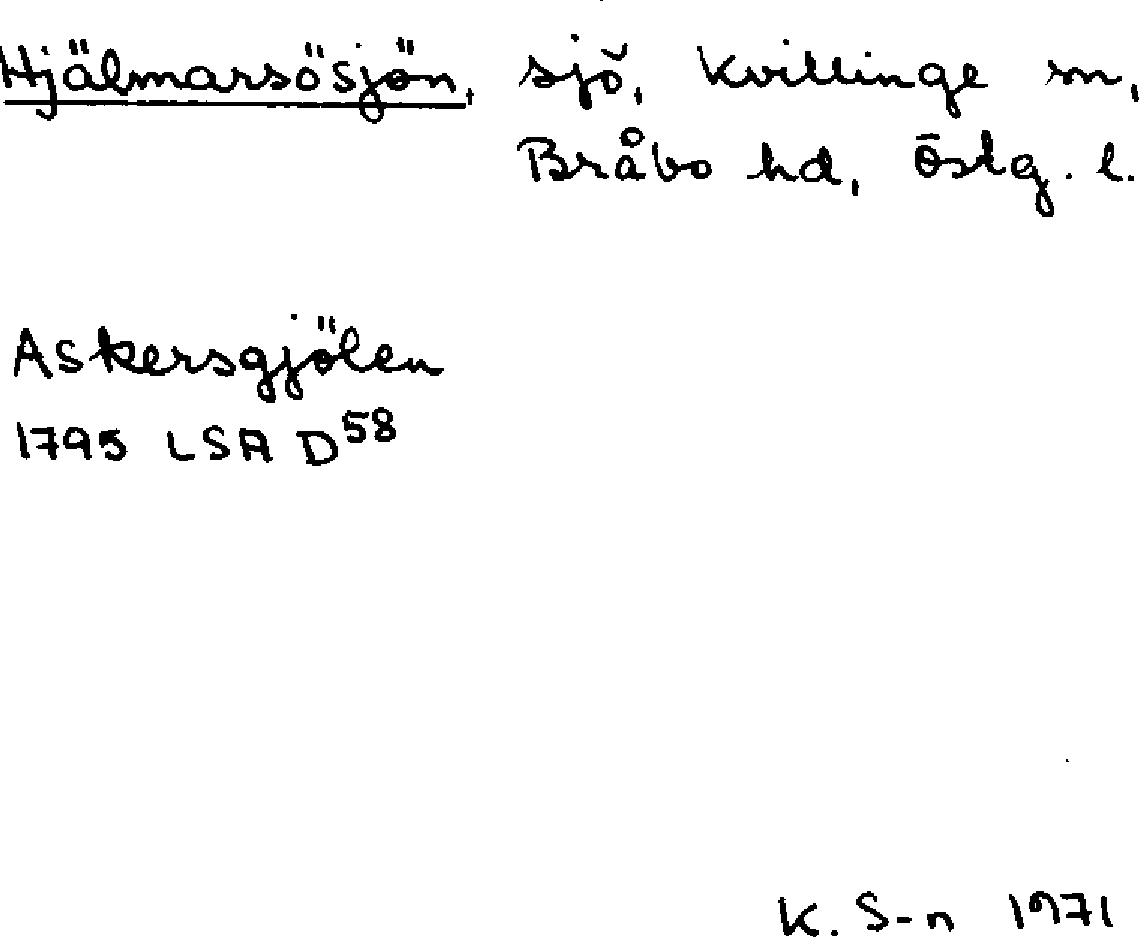 Hjälmarsösjön, sjö, Kvillinge sn,
Bråbo hd, Östg. l.
Askersgjölen
1795 LSA D58
K. S-n 1971